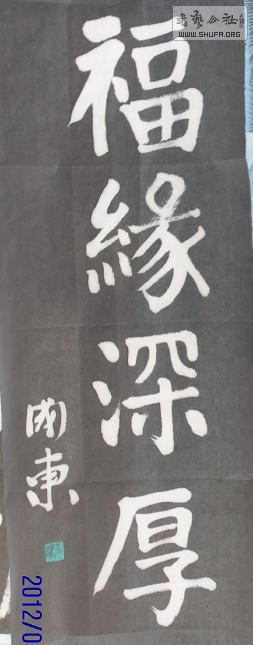 福緣深厚
國東
書艺公社
WWW.SHUFA.ORG
2012/0